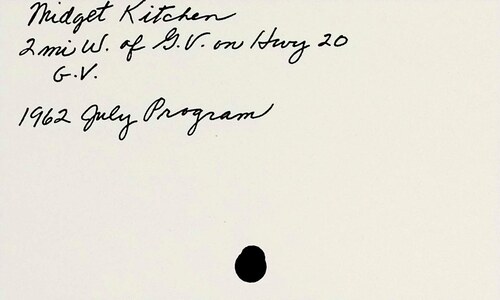 Midget Kitchen
2 mi W. of G.V. on Hwy 20
G.V.
1962 July Program